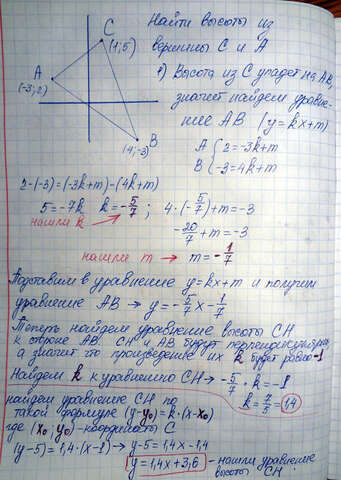 Найти высоты из
вершины C и A
C
(1;5)
A
(-3;2)
B
(4;-3)
1) Высота из C упадет на AB,
значит найдем уравне-
ние AB (y=kx+m)
A { 2=-3k+m
B { -3=4k+m
2-(-3)=(-3k+m)-(4k+m)
5=-7k k=-5/7 ; 4·(-5/7)+m=-3
нашли k
-20/7+m=-3
нашли m → m=-1/7
Подставим в уравнение y=kx+m и получим
уравнение AB → y=-5/7x-1/7
Теперь найдем уравнение высоты CH
к стороне AB. CH и AB будут перпендикулярны,
а значит что произведение их k будет равно -1
Найдем k к уравнению CH → -5/7·k=-1
k=7/5=1,4
найдем уравнение CH по
такой формуле (y-y₀)=k·(x-x₀)
где (x₀;y₀)-координаты C
(y-5)=1,4·(x-1) → y-5=1,4x-1,4
y=1,4x+3,6 - нашли уравнение
высоты CH